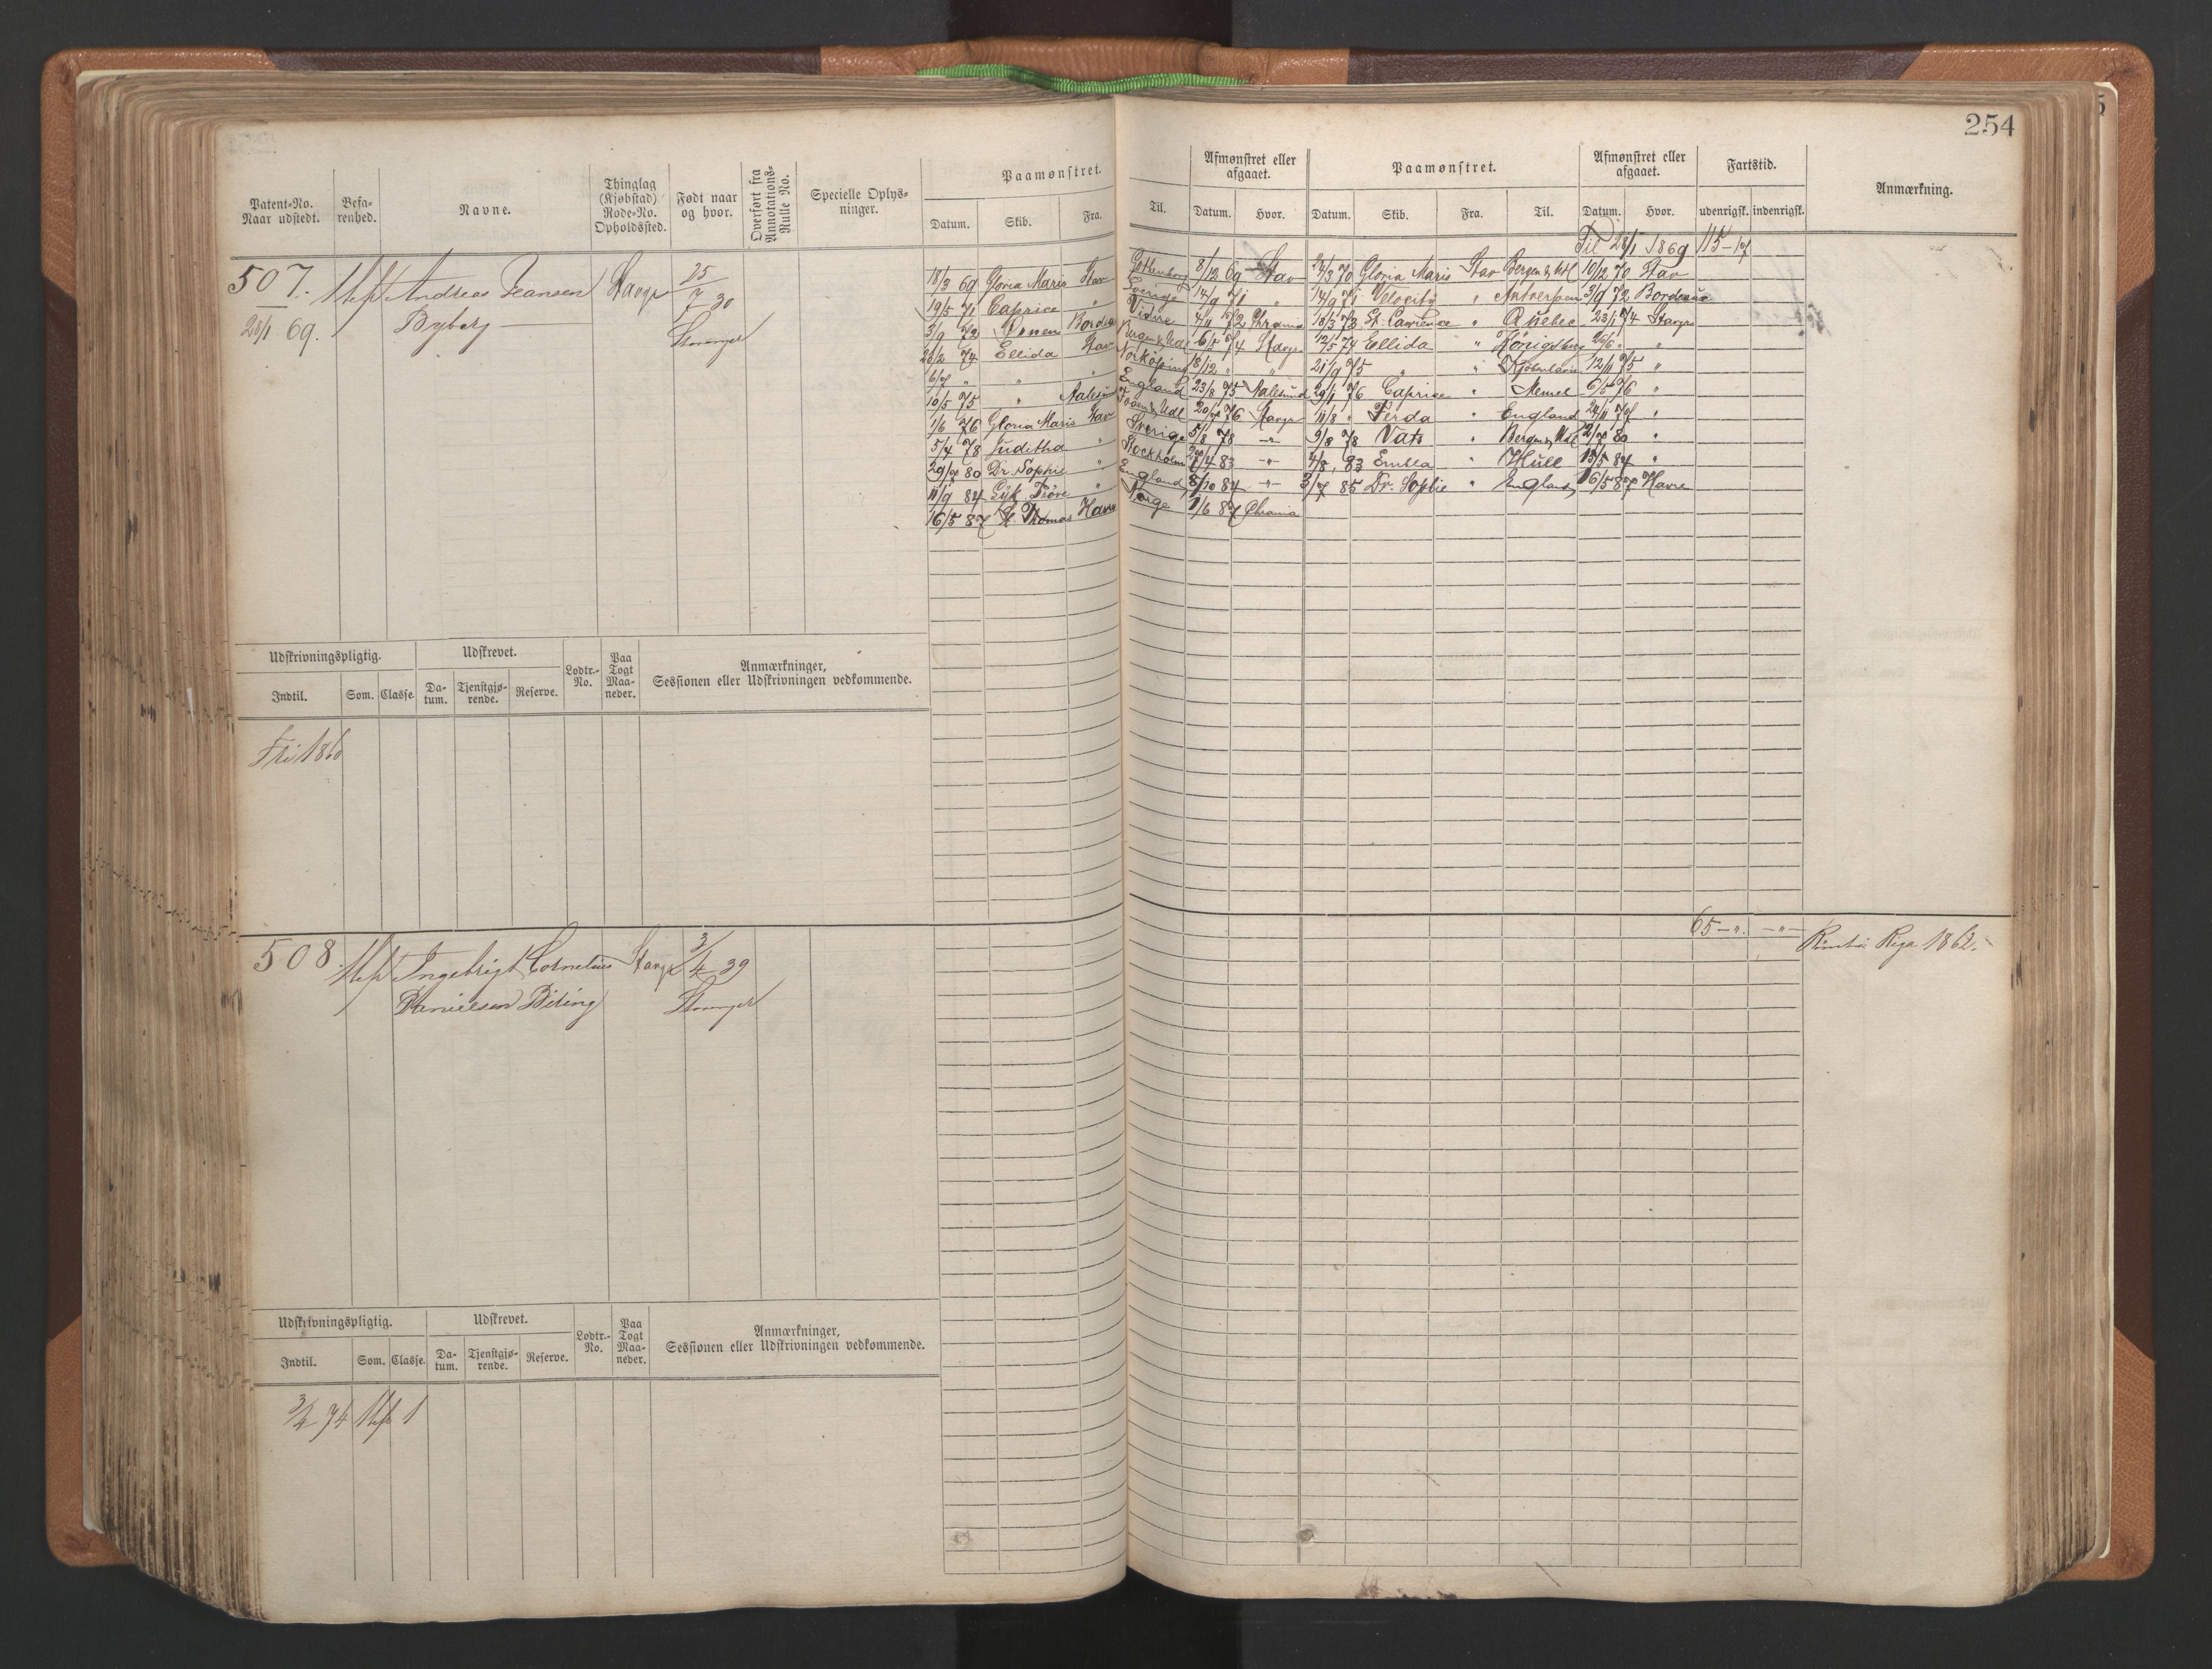 254
Patent-No. Naar udstedt. Befa-renhed. Navne. Thinglag (Kjøbstad) Rode-No. Opholdssted. Født naar og hvor. Overført fra Annotations-Rulle No. Specielle Oplys-ninger. Paamønstret. Datum. Skib. Fra. Til. Afmønstret eller afgaaet. Datum. Hvor. Paamønstret. Datum. Skib. Fra. Til. Afmønstret eller afgaaet. Datum. Hvor. Fartstid. udenrigsk. indenrigsk. Anmærkning.
Til 28/1 1869 115-
507. Andreas Jeansen Stavgr 25/7 30
28/1 69. Byberg Stavanger
18/3 69 Gloria Maris Stav Gottenborg 8/12 69 Stav 24/3 70 Gloria Maris Stav Bergen & Udl 10/12 70 Stav
19/5 71 Caprice " Sverige 14/9 71 " 14/9 71 Velocity " Antwerpen 3/9 72 Bordeaux
3/9 72 Bordea 4/11 72 Chrania 18/3 73 St. Lawrence " Quebec 23/1 74 Stavgr
26/2 74 Ellida Stav Bergen & Udl 6/5 74 Stavgr 12/5 74 Ellida " Königsberg 26/6 " "
6/7 " " " Norköping 18/12 " " 21/9 75 " " Kjøbenhavn 12/11 75 "
10/5 75 " Aalesund England 23/8 75 Aalesund 29/1 76 Caprice " Memel 6/5 76 "
1/6 76 Gloria Maris Stav 20/7 76 Stavgr 11/8 " Ferda " England 24/11 77 "
5/4 78 Juditha " Sverige 5/8 78 -"- 9/8 78 Vats " Bergen & Udl 2/7 80 "
29/7 80 Dr. Sophie " Stockholm 27/4 83 -"- 4/8 83 Embla " Hull 15/5 84 "
11/9 84 " England 8/10 84 -"- 3/7 85 Dr. Sophie " England 16/5 87 Havre
16/5 87 St Thomas Havre Norge 1/6 87 Chrania
Udskrivningspligtig. Indtil. Som. Classe. Udskrevet. Da-tum. Tjenstgjø-rende. Reserve. Lodtr.-No. Paa Togt Maa-neder. Anmærkninger, Sessionen eller Udskrivningen vedkommende.
Fri 1860
65-"- -"-
508. Ingebrigt Cornelius Stavgr 3/4 39 Rømt i Riga 1862.
Danielsen Stavanger
Udskrivningspligtig. Indtil. Som. Classe. Udskrevet. Da-tum. Tjenstgjø-rende. Reserve. Lodtr.-No. Paa Togt Maa-neder. Anmærkninger, Sessionen eller Udskrivningen vedkommende.
3/4 74 1